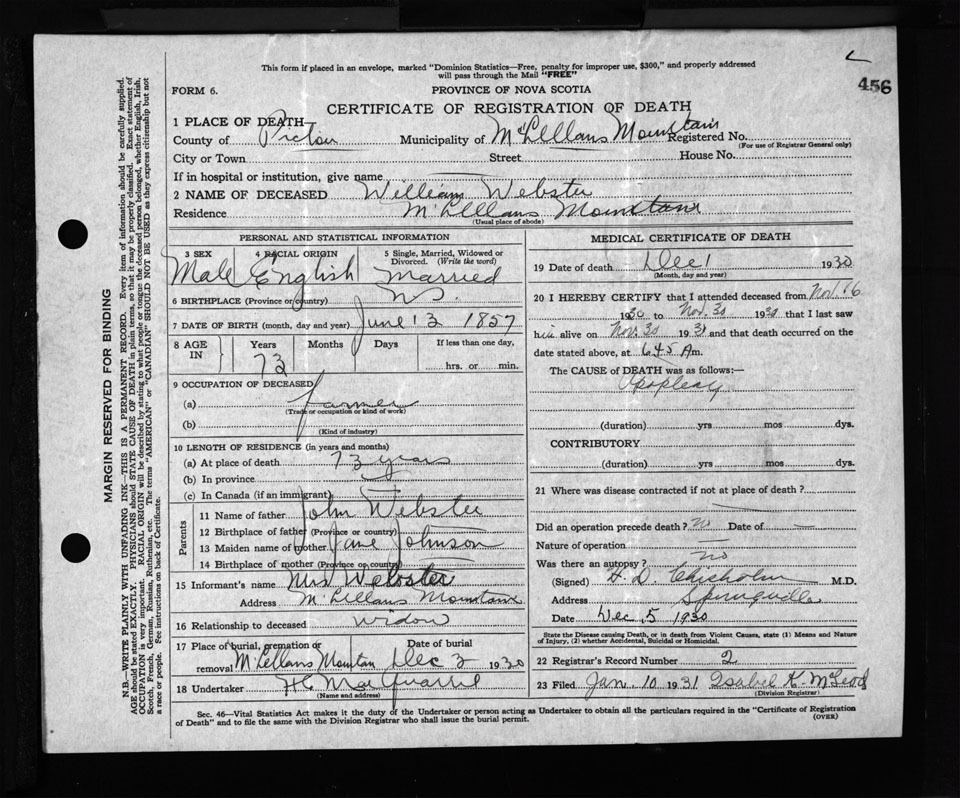 456
This form if placed in an envelope, marked "Dominion Statistics—Free, penalty for improper use, $300," and properly addressed
will pass through the Mail "FREE"
FORM 6.
PROVINCE OF NOVA SCOTIA
CERTIFICATE OF REGISTRATION OF DEATH
1 PLACE OF DEATH—
County of Pictou Municipality of McLellans Mountain Registered No.
(For use of Registrar General only)
City or Town Street House No.
If in hospital or institution, give name
2 NAME OF DECEASED William Webster
Residence McLellans Mountain
(Usual place of abode)
PERSONAL AND STATISTICAL INFORMATION
3 SEX 4 RACIAL ORIGIN 5 Single, Married, Widowed or Divorced. (Write the word)
Male English Married
6 BIRTHPLACE (Province or country) N.S.
7 DATE OF BIRTH (month, day and year) June 13 1857
8 AGE IN Years Months Days If less than one day,
73 hrs. or min.
9 OCCUPATION OF DECEASED
(a) farmer
(Trade or occupation or kind of work)
(b)
(Kind of industry)
10 LENGTH OF RESIDENCE (in years and months)
(a) At place of death 73 years
(b) In province
(c) In Canada (if an immigrant)
Parents
11 Name of father John Webster
12 Birthplace of father (Province or country)
13 Maiden name of mother Jane Johnson
14 Birthplace of mother (Province or country)
15 Informant's name Mrs Webster
Address McLellans Mountain
16 Relationship to deceased widow
17 Place of burial, cremation or removal McLellans Mountan Date of burial Dec 3 1930
18 Undertaker H C MacQuarrie
(Name and address)
MEDICAL CERTIFICATE OF DEATH
19 Date of death Dec 1 1930
(Month, day and year)
20 I HEREBY CERTIFY that I attended deceased from Nov. 26
1930 to Nov. 30 1930 that I last saw
him alive on Nov. 30 1931 and that death occurred on
date stated above, at 6 45 Am.
The CAUSE of DEATH was as follows:—
Apoplexy
(duration) yrs mos dys.
CONTRIBUTORY
(duration) yrs mos dys.
21 Where was disease contracted if not at place of death?
Did an operation precede death? no Date of —
Nature of operation —
Was there an autopsy? no
(Signed) H. D. Chisholm M.D.
Address Springville
Date Dec. 5 1930
State the Disease causing Death, or in death from Violent Causes, state (1) Means and Nature
of Injury, (2) whether Accidental, Suicidal or Homicidal.
22 Registrar's Record Number 2
23 Filed Jan 10 1931 Isabel K. McLeod
(Division Registrar)
Sec. 46—Vital Statistics Act makes it the duty of the Undertaker or person acting as Undertaker to obtain all the particulars required in the "Certificate of Registration
of Death" and to file the same with the Division Registrar who shall issue the burial permit.
(OVER)
MARGIN RESERVED FOR BINDING
N.B.—WRITE PLAINLY WITH UNFADING INK—THIS IS A PERMANENT RECORD. Every item of information should be carefully supplied.
AGE should be stated EXACTLY. PHYSICIANS should STATE CAUSE OF DEATH in plain terms, so that it may be properly classified. Exact statement of
OCCUPATION is very important. RACIAL ORIGIN will be described by stating to what people or tongue the deceased person belonged, whether English, Irish,
Scotch, French, German, Russian, Ruthenian, etc. The terms "AMERICAN" or "CANADIAN" SHOULD NOT BE USED as they express citizenship but not
a race or people. See instructions on back of Certificate.